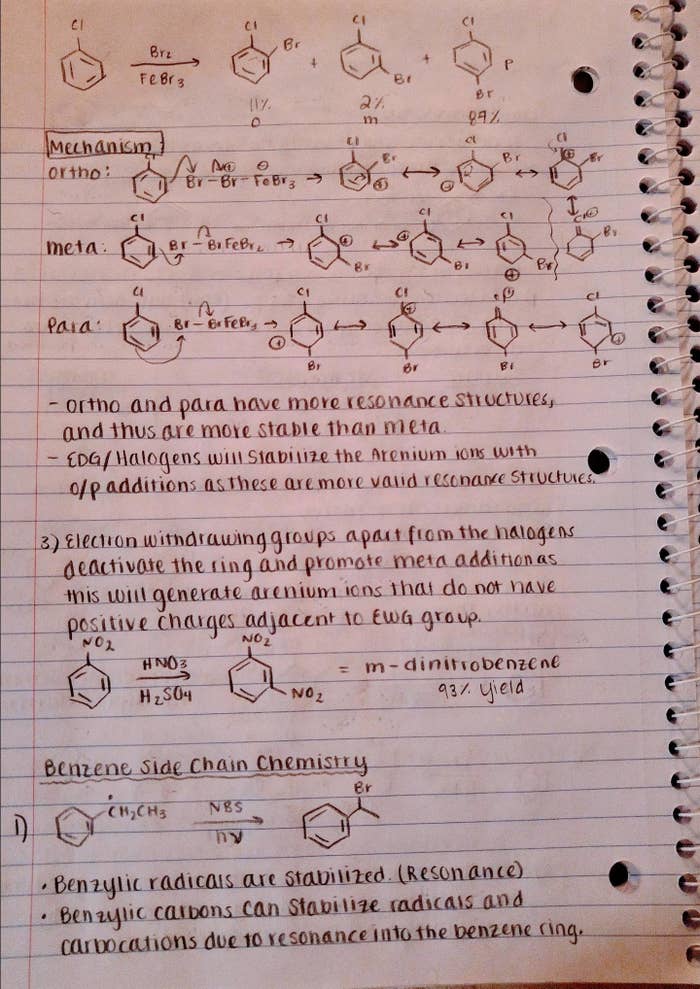 Cl Cl Cl Cl
Br₂ Br + + P
FeBr₃ Br Br
11% 2% 87%
o m
Mechanism
ortho: Br-Br-FeBr₃ → Br ⊕ ↔ Br ↔ Br
meta: Cl Br-BrFeBr₂ → Cl ⊕ Br ↔ Cl ⊕ Br ↔ Cl ⊕ Br
Para: Cl Br-BrFeBr₃ → Cl ⊕ Br ↔ Cl ⊕ Br ↔ Br ↔ Cl ⊕ Br
- ortho and para have more resonance structures,
and thus are more stable than meta.
- EDG/Halogens will stabilize the Arenium ions with
o/p additions as these are more valid resonance structures.
3) Electron withdrawing groups apart from the halogens
deactivate the ring and promote meta addition as
this will generate arenium ions that do not have
positive charges adjacent to EWG group.
NO₂ NO₂
HNO₃ = m-dinitrobenzene
H₂SO₄ NO₂ 93% yield
Benzene Side Chain Chemistry
Br
1) CH₂CH₃ NBS
hν
• Benzylic radicals are stabilized. (Resonance)
• Benzylic carbons can stabilize radicals and
carbocations due to resonance into the benzene ring.